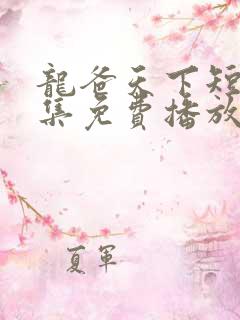 龍爸天下短
集免費播放
夏軍